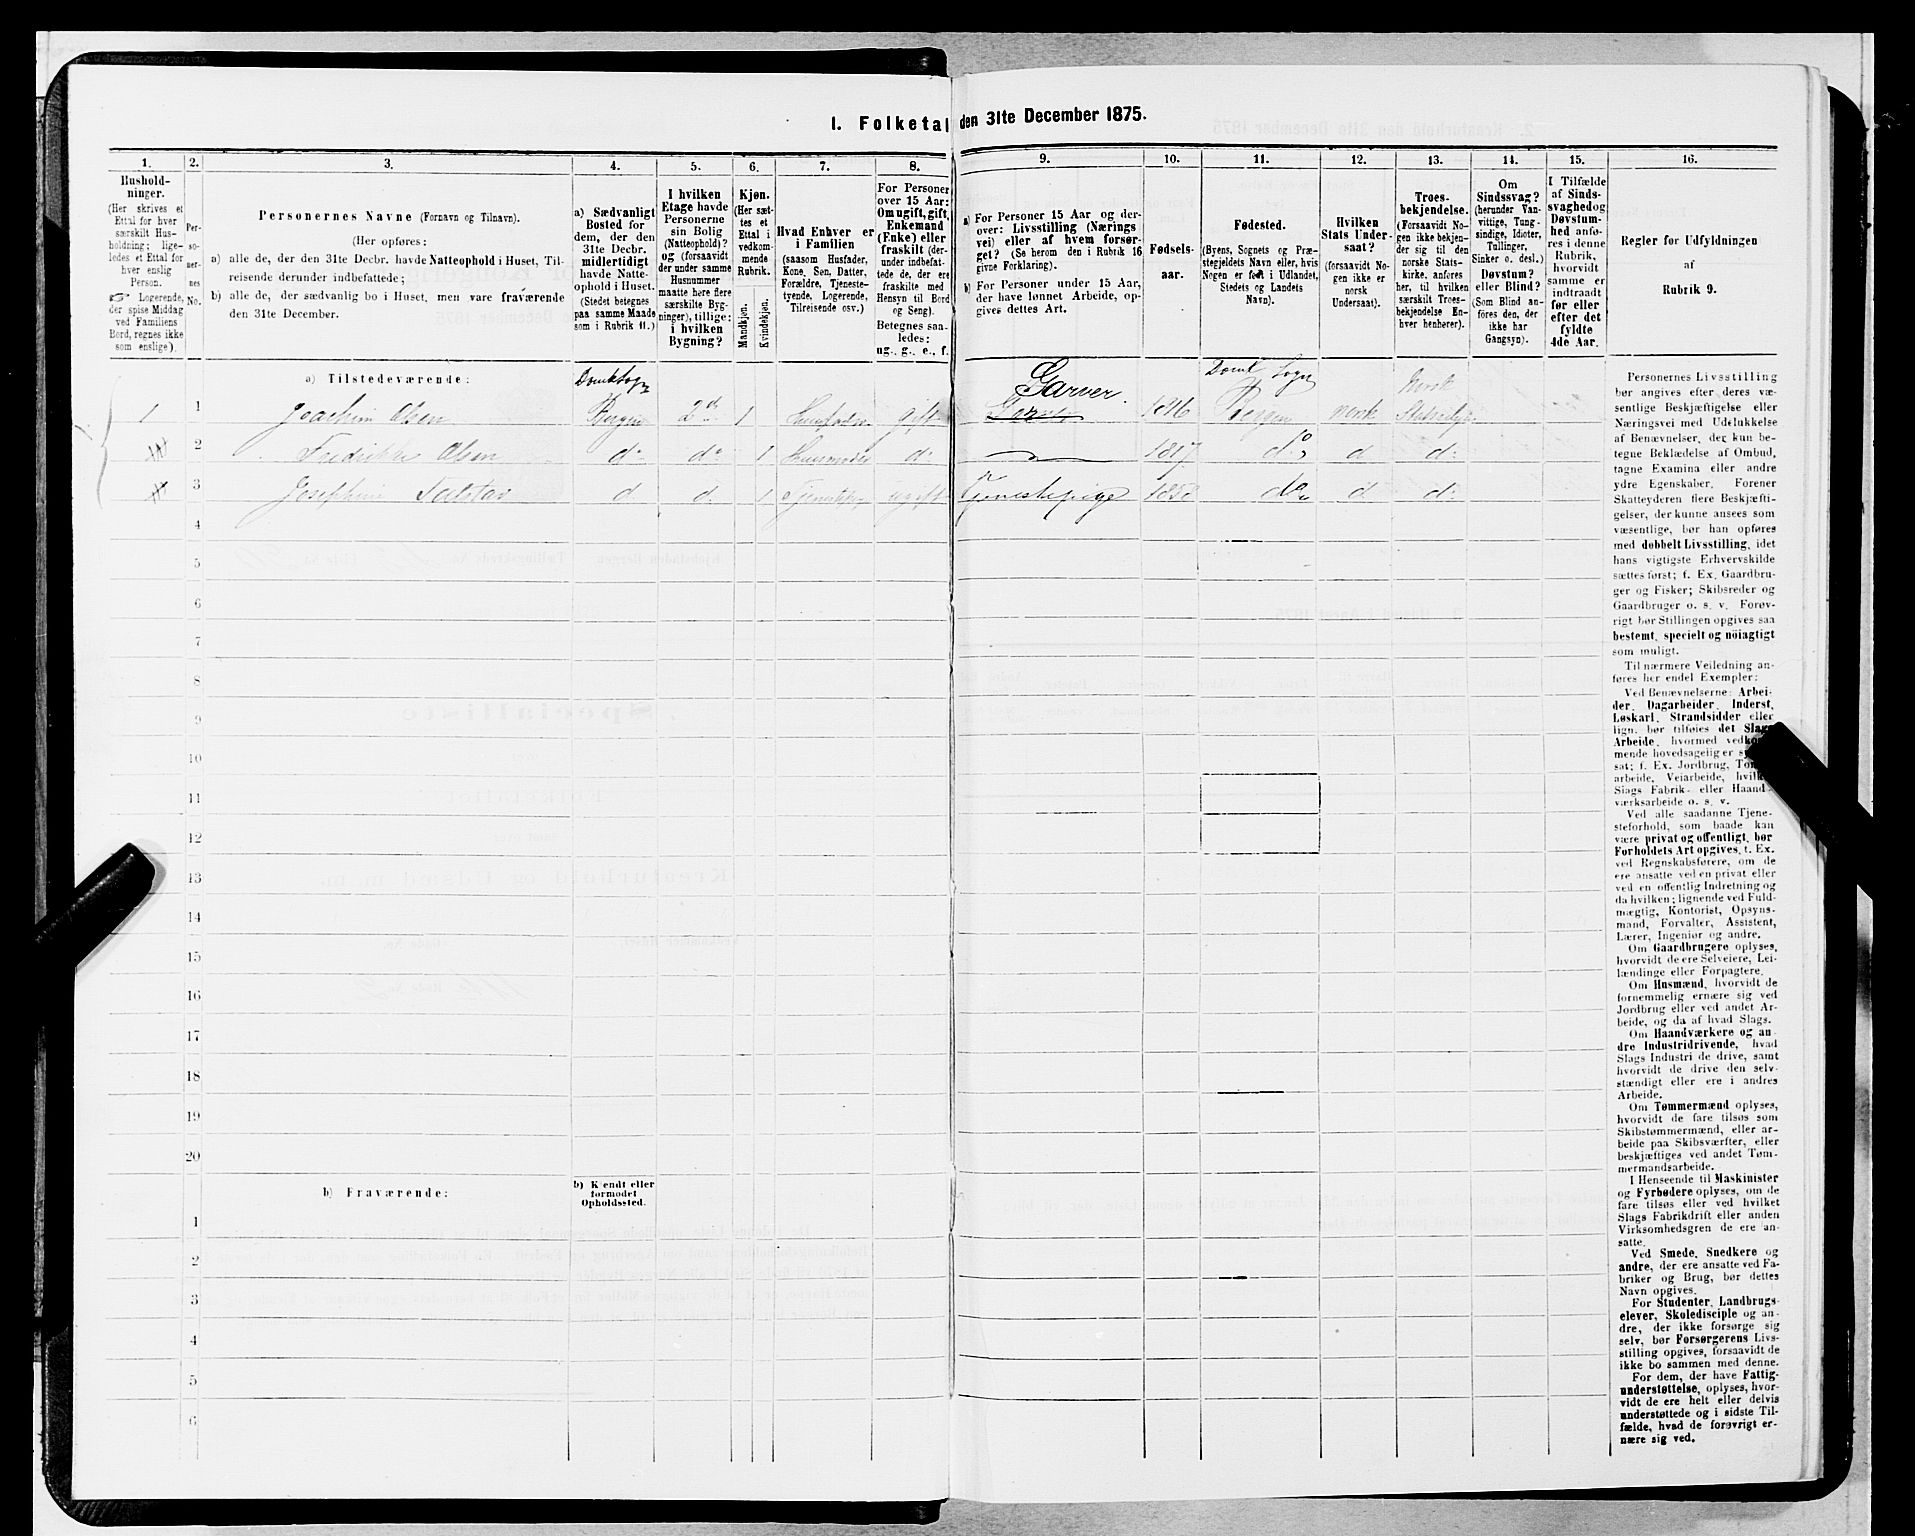 I. Folketal den 31te December 1875.
1.
Hushold-
ninger.
(Her skrives et
Ettal for hver
særskilt Hus-
holdning; lige-
ledes et Ettal for
hver enslig
Person.
☞ Logerende,
der spise Middag
ved Familiens
Bord, regnes ikke
som enslige).
2.
Per-
so-
ner-
nes
No.
3.
Personernes Navne (Fornavn og Tilnavn).
(Her opføres:
a) alle de, der den 31te Decbr. havde Natteophold i Huset, Til-
reisende derunder indbefattede;
b) alle de, der sædvanlig bo i Huset, men vare fraværende
den 31te December.
4.
a) Sædvanligt
Bosted for
dem, der den
31te Decbr.
midlertidigt
havde Natte-
ophold i Huset.
(Stedet betegnes
paa samme Maade
som i Rubrik 11.)
5.
I hvilken
Etage havde
Personerne
sin Bolig
(Natteophold)?
og (forsaavidt
der under samme
Husnummer
maatte høre flere
særskilte Byg-
ninger), tillige:
i hvilken
Bygning?
6.
Kjøn.
(Her sæt-
tes et
Ettal i
vedkom-
mende
Rubrik.
Mandkjøn.
Kvindekjøn.
7.
Hvad Enhver er
i Familien
(saasom Husfader,
Kone, Søn, Datter,
Forældre, Tjeneste-
tyende, Logerende,
Tilreisende osv.)
8.
For Personer
over 15 Aar:
Om ugift, gift,
Enkemand
(Enke) eller
fraskilt (der-
under indbefat-
tede de, der ere
fraskilte med
Hensyn til Bord
og Seng).
Betegnes saa-
ledes:
ug., g., e., f.
9.
a) For Personer 15 Aar og der-
over: Livsstilling (Nærings
vei) eller af hvem forsør-
get? (Se herom den i Rubrik 16
givne Forklaring).
b) For Personer under 15 Aar,
der have lønnet Arbeide, op-
gives dettes Art.
10.
Fødsels-
aar.
11.
Fødested.
(Byens, Sognets og Præ-
stegjeldets Navn eller, hvis
Nogen er født i Udlandet,
Stedets og Landets
Navn).
12.
Hvilken
Stats Under-
saat?
(forsaavidt No-
gen ikke er
norsk
Undersaat).
13.
Troes-
bekjendelse.
(Forsaavidt No-
gen ikke bekjen-
der sig til den
norske Stats-
kirke, anføres
her, til hvilken
særskilt Troes-
bekjendelse En-
hver henhører).
14.
Om
Sindssvag?
(herunder Van-
vittige, Tung-
sindige, Idioter,
Tullinger,
Sinker o. desl.)
Døvstum?
eller Blind?
(Som Blind an-
føres den, der
ikke har
Gangsyn).
15.
I Tilfælde
af Sinds-
svaghed og
Døvstum-
hed anfø-
res i denne
Rubrik,
hvorvidt
samme er
indtraadt
før eller
efter det
fyldte
4de Aar.
16.
Regler for Udfyldningen
af
Rubrik 9.
a) Tilstedeværende:
Domk Sogn
Garver.
Domk Sogn
Norsk
1 1 Joachim Olsen Bergen 2d 1 Huusfader gift 1816 Bergen norsk Statskirke
2 Fredrikke Olsen do do 1 Huusmoder do 1817 do d do
3 Josephine d d 1 ugift Tjenestepige 1858 do d do
4
5
6
7
8
9
10
11
12
13
14
15
16
17
18
19
20
b) Fraværende:
b) Kjendt eller
formodet
Opholdssted.
1
2
3
4
5
6
Personernes Livsstilling
bør angives efter deres væ-
sentlige Beskjæftigelse eller
Næringsvei med Udelukkelse
af Benævnelser, der kun be-
tegne Beklædelse af Ombud,
tagne Examina eller andre
ydre Egenskaber. Forener
Skatteyderen flere Beskjæfti-
gelser, der kunne ansees som
væsentlige, bør han opføres
med dobbelt Livsstilling, idet
hans vigtigste Erhvervskilde
sættes først; f. Ex. Gaardbru-
ger og Fisker; Skibsreder og
Gaardbruger o. s. v. Forøv-
rigt bør Stillingen opgives saa
bestemt, specielt og nøiagtigt
som muligt.
Til nærmere Veiledning an-
føres her endel Exempler:
Ved Benævnelserne: Arbei-
der, Dagarbeider, Inderst,
Løskarl, Strandsidder eller
lign. bør tilføies det Slags
Arbeide, hvormed vedkom-
mende hovedsagelig er
sat; f. Ex. Jordbrug,
arbeide, Veiarbeide,
Slags Fabrik- eller Haand-
værksarbeide o. s. v.
Ved alle saadanne Tjene-
steforhold, som baade kan
være privat og offentligt, bør
Forholdets Art opgives, f. Ex.
ved Regnskabsførere, om de
ere ansatte ved en privat eller
ved en offentlig Indretning og
da hvilken; lignende ved Fuld-
mægtig, Kontorist, Opsyns-
mand, Forvalter, Assistent,
Lærer, Ingeniør og andre.
Om Gaardbrugere oplyses,
hvorvidt de ere Selveiere, Lei-
lændinge eller Forpagtere.
Om Husmænd, hvorvidt de
fornemmelig ernære sig ved
Jordbrug eller ved andet Ar-
beide, og da af hvad Slags.
Om Haandværkere og an-
dre Industridrivende, hvad
Slags Industri de drive, samt
hvorvidt de drive den selv-
stændigt eller ere i andres
Arbeide.
Om Tømmermænd oplyses,
hvorvidt de fare tilsøs som
Skibstømmermænd, eller ar-
beide paa Skibsværfter, eller
beskjæftiges ved andet Tøm-
mermandsarbeide.
I Henseende til Maskinister
og Fyrbødere oplyses, om de
fare tilsøs eller ved hvilket
Slags Fabrikdrift eller anden
Virksomhedsgren de ere an-
satte.
Ved Smede, Snedkere og
andre, der ere ansatte ved Fa-
briker og Brug, bør dettes
Navn opgives.
For Studenter, Landbrugs-
elever, Skoledisciple og an-
dre, der ikke forsørge sig
selv, bør Forsørgerens Livs-
stilling opgives, forsaavidt de
ikke bo sammen med denne.
For dem, der have Fattig-
understøttelse, oplyses, hvor-
vidt de ere helt eller delvis
understøttede og i sidste Til-
fælde, hvad de forøvrigt er-
nære sig ved.